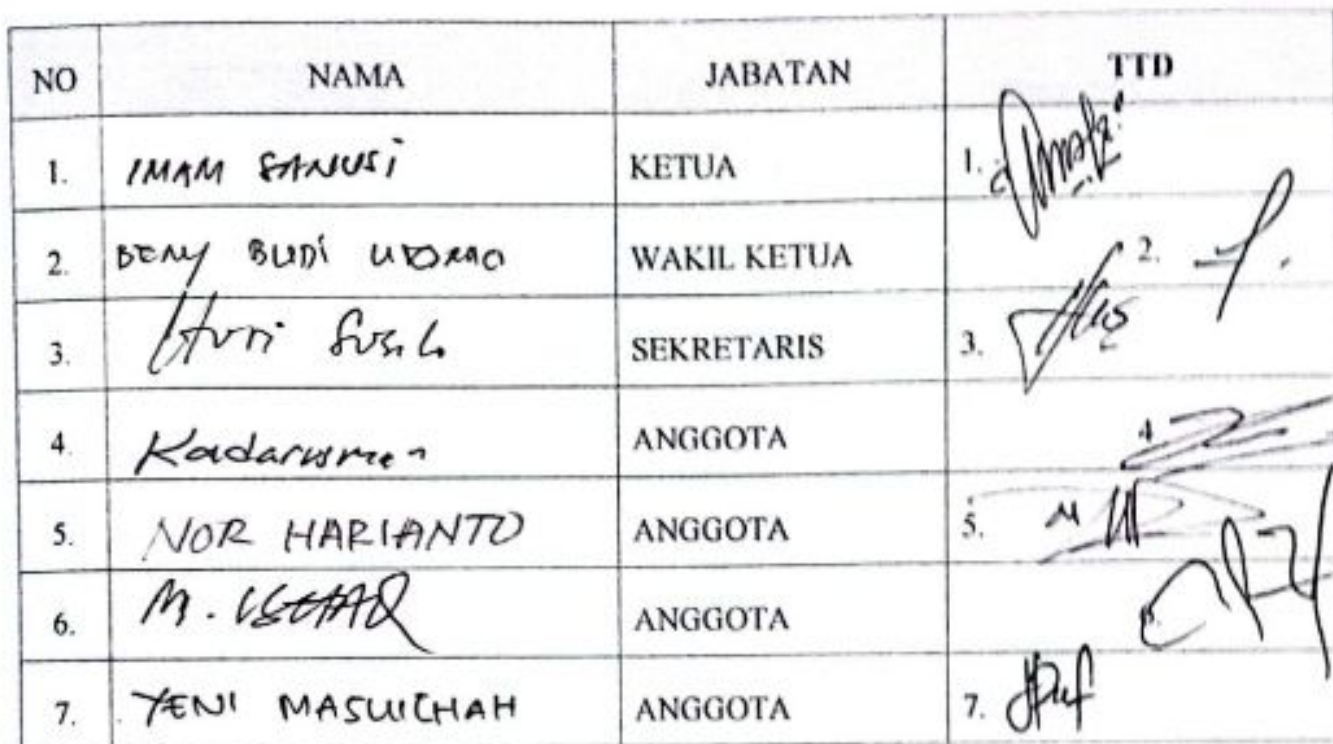 NO NAMA JABATAN TTD
1. IMAM SANUSI KETUA 1.
2. BENY BUDI UTOMO WAKIL KETUA 2.
3. Susilo SEKRETARIS 3.
4. Kadarusman ANGGOTA 4.
5. NOR HARIANTO ANGGOTA 5.
6. M. ISHAQ ANGGOTA 6.
7. YENI MASLICHAH ANGGOTA 7.